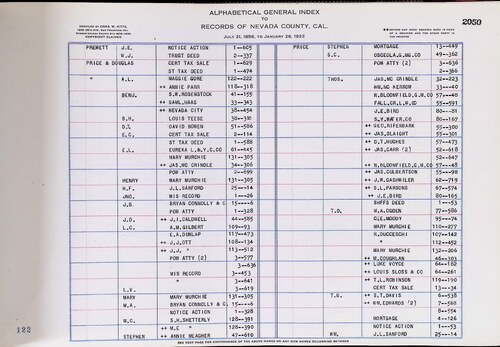 ALPHABETICAL GENERAL INDEX
TO
RECORDS OF NEVADA COUNTY, CAL.
JULY 31, 1856, to JANUARY 26, 1922
2059
PREMETT J.E. NOTICE ACTION 1--605
W.J. TRUST DEED 2--337
PRICE & DOUGLAS CERT TAX SALE 1--629
ST TAX DEED 1--474
" A.L. MAGGIE GORE 122--222
++ ANNIE PARR 118--318
BENJ. S.W.ROSENSTOCK 41--155
++ SAML.HAAS 33--343
++ NEVADA CITY 35--454
B.H. LOUIS TEESE 30--310
D.T. DAVID BOWEN 51--586
E.C. CERT TAX SALE 2--114
ST TAX DEED 1--588
E.L. EUREKA L.& Y.C.CO 61--445
MARY MURCHIE 131--305
++ JAS.MC GRINDLE 34--306
POW ATTY 2--699
HENRY MARY MURCHIE 131--305
H.F. J.L.SANFORD 25---14
JNO. MIS RECORD 1--26
J.B. BRYAN CONNOLLY & C 15----6
POW ATTY 1--328
J.D. ++ J.I.CALDWELL 44--585
L.G. A.M.GILBERT 109--93
E.A.DUNLAP 117--473
++ J.J.OTT 108--134
++ J.J. " 113--512
POW ATTY (2) 3--577
3--636
MIS RECORD 3--453
" 3--641
L.V. 3--619
MARY MARY MURCHIE 131--305
W.A. BRYAN CONNOLLY & C 15----6
1--328
W.C. S.H.SHETTERLY 128--391
++ M.E " 128--390
STEPHEN ++ ANNIE MEAGHER 47--610
PRICE STEPHEN MORTGAGE 13--449
S.C. OSCEOLA,G.MG.CO 49--362
POW ATTY (2) 3--636
2--366
THOS. JAS.MC GRINDLE 32--223
WM.MC KERROW 33--40
N.BLOOMFIELD,G.M.CO 57--48
FALL,CR.L.W.CO 55--591
J.E.BIRD 80--81
S.Y.WATER.CO 80--167
++ GEO.RIFENBARK 55--300
++ JAS.SLAIGHT 55--301
++ D.T.HUGHES 57--473
++ JAS.CARR (2) 52--618
52--647
++ N.BLOOMFIELD,G.M.CO 57--48
++ JAS.CULBERTSON 55--98
++ J.M.GASHWILER 62--719
++ S.L.PARSONS 97--574
++ J.E.BIRD 80--165
SHFFS DEED 1--53
T.D. W.A.OGDEN 77--586
C.E.MOODY 95--74
MARY MURCHIE 110--277
R.DUCCESCHI 107--142
" 112--452
MARY MURCHIE 132--206
++ M.COUGHLAN 46--303
++ LUKE VOYCE 64--182
++ LOUIS SLOSS & CO 64--261
++ T.L.ROBINSON 119--190
CERT TAX SALE 13--34
T.G. ++ S.T.DAVIS 6--538
++ WM.EDWARDS (2) 7--568
8--554
MORTGAGE 4--126
NOTICE ACTION 1--53
WM. J.L.SANFORD 25---14
122